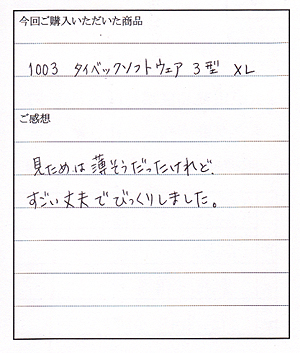 今回ご購入いただいた商品
1003 タイベックソフトウェア 3型 XL
ご感想
見ためは薄そうだったけれど、
すごい丈夫でびっくりしました。